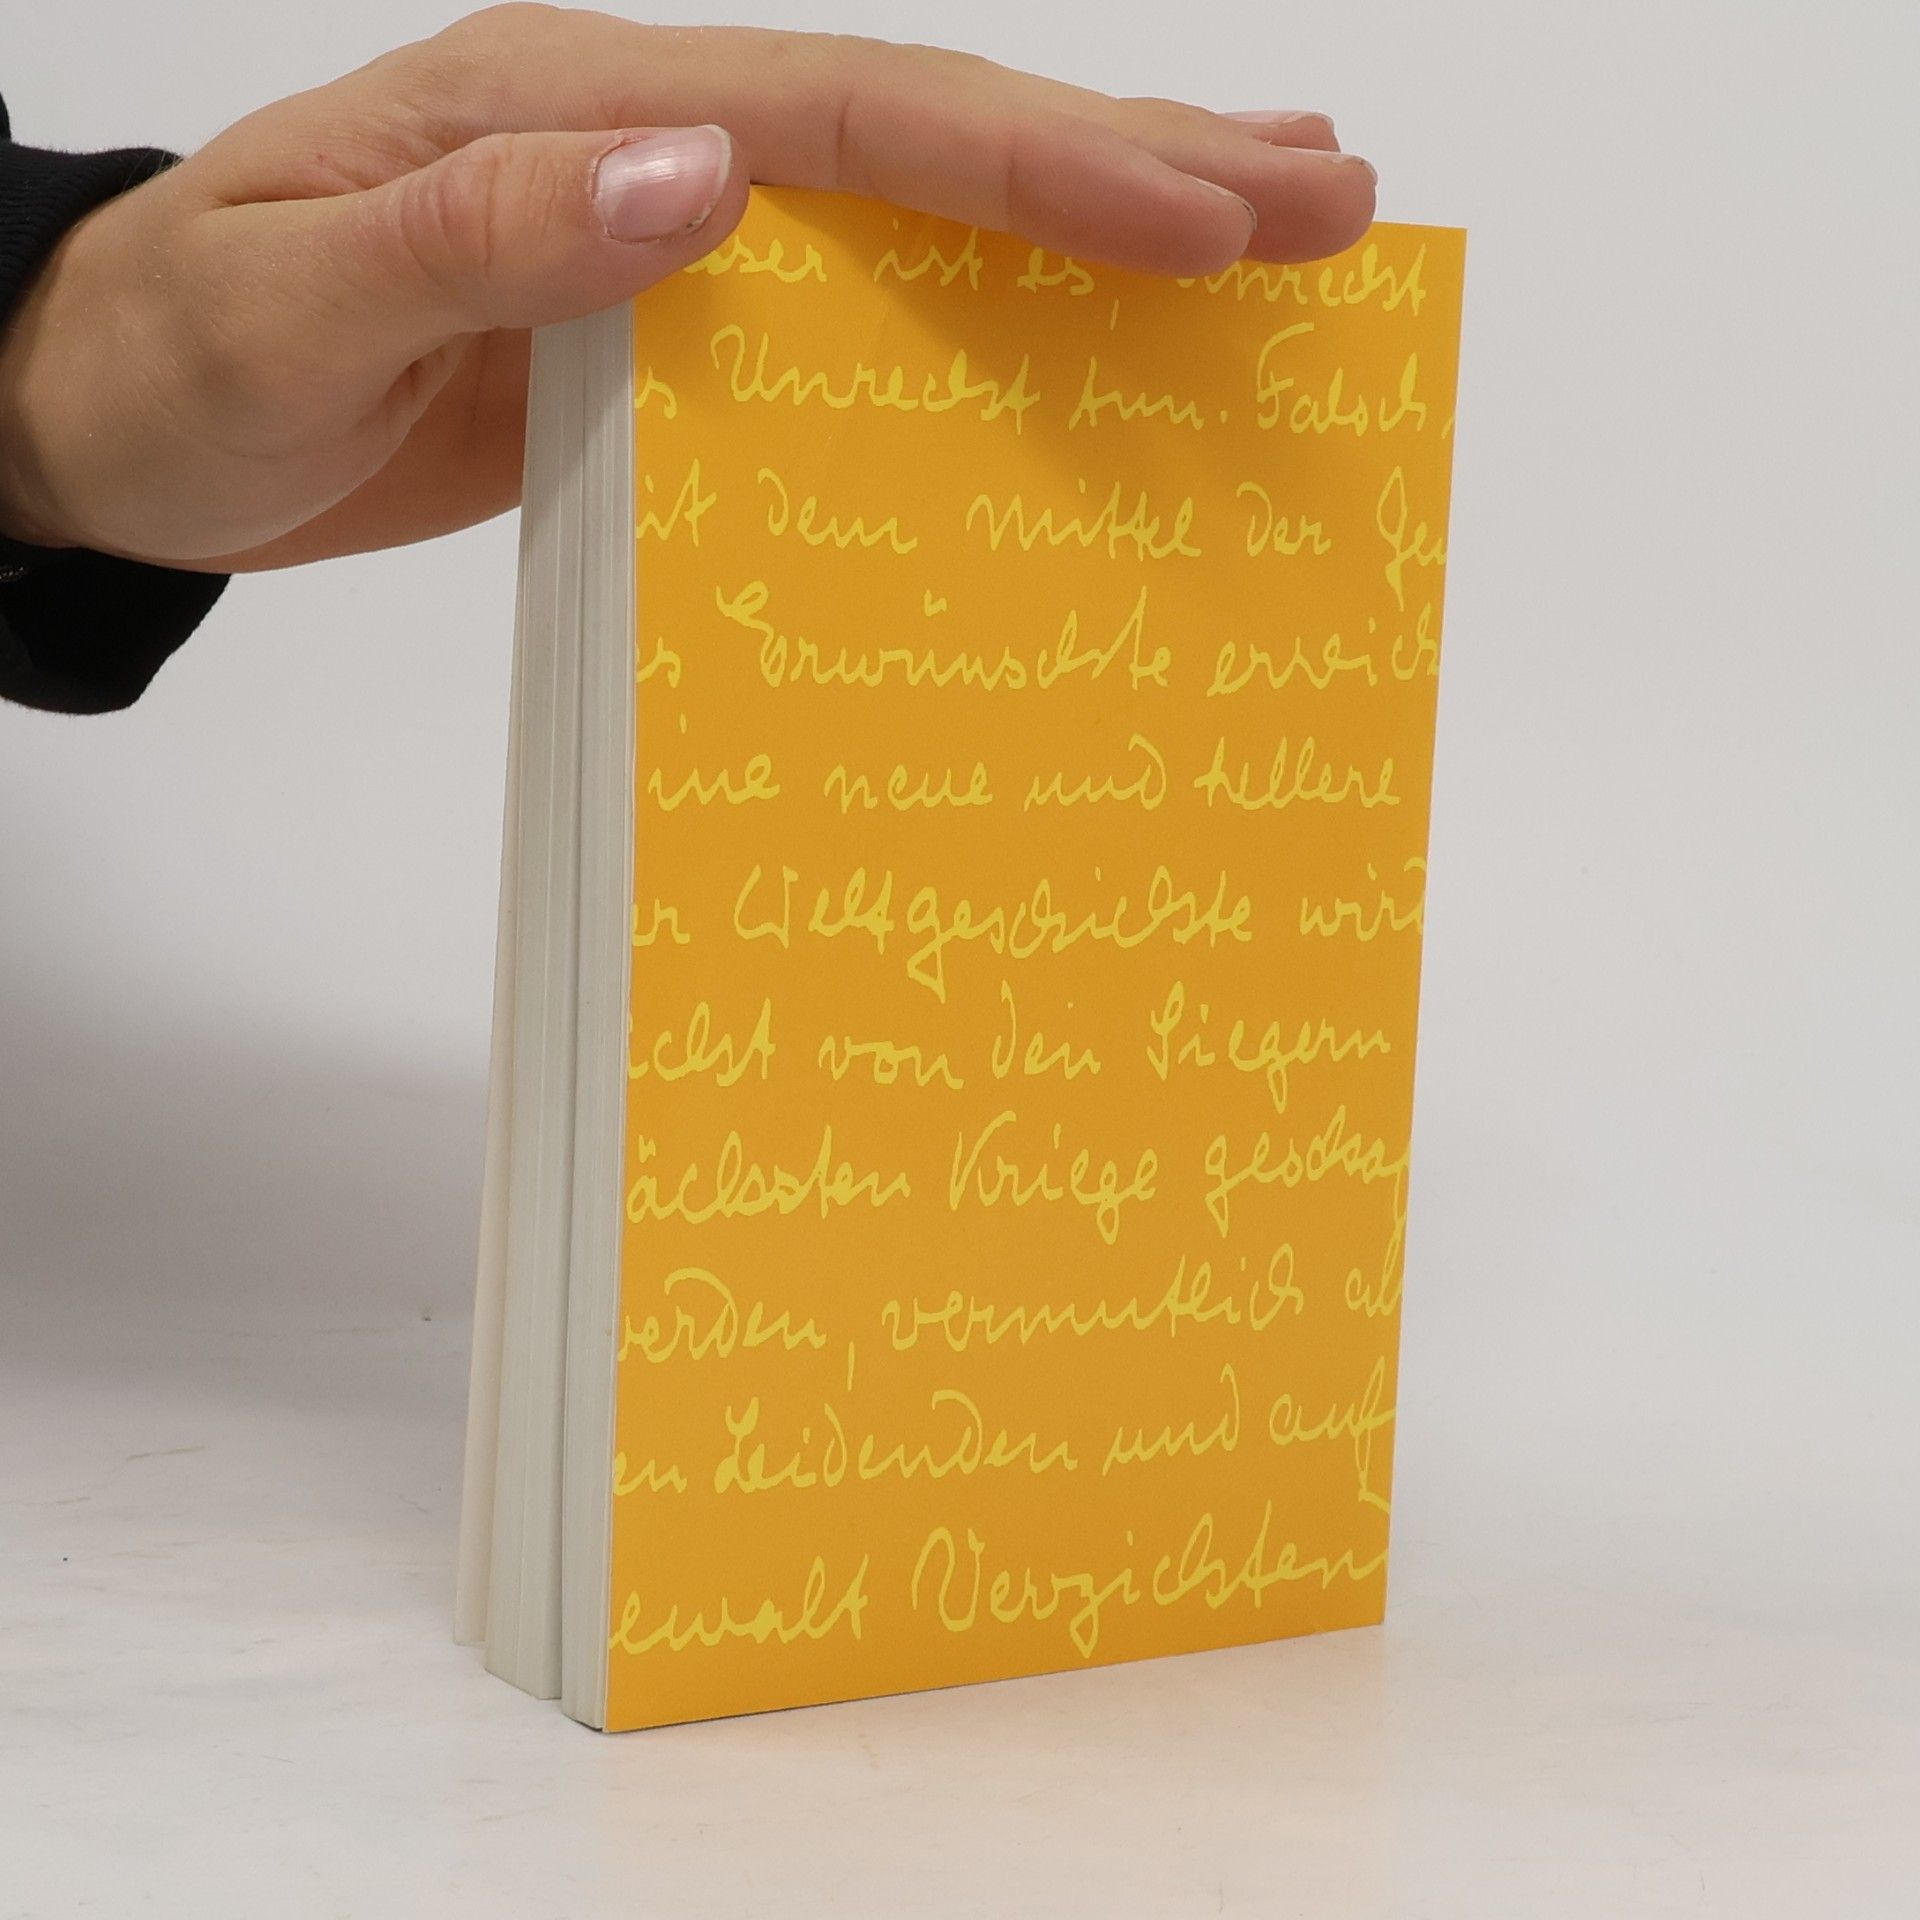 sser ist es, Unrecht
s Unrecht tun. Falsch
it dem Mittel der Ge
es Erwünschte erreich
ine neue und hellere
er Weltgeschichte wird
icht von den Siegern
ächsten Kriege geschaf
werden, vermutlich al
en Leidenden und auf
ewalt Verzichtend